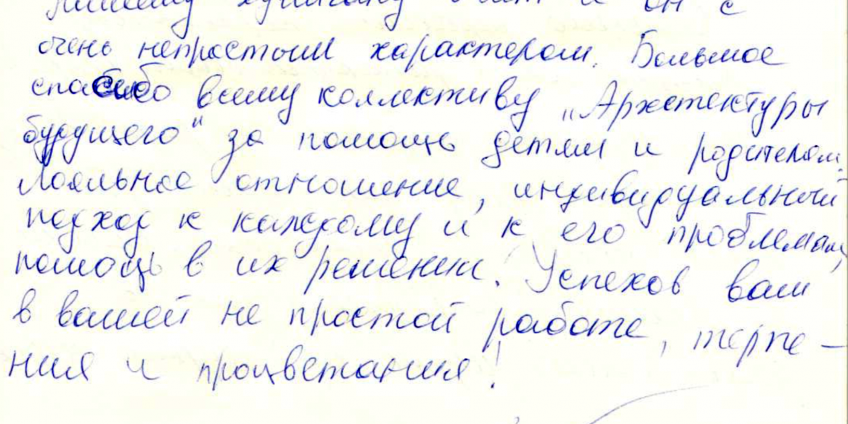 он с
очень непростым характером. Большое
спасибо всему коллективу „Архетектуры
будущего“ за помощь детям и родителям.
Лояльное отношение, индивидуальный
подход к каждому и к его проблемам,
помощь в их решении! Успехов вам
в вашей не простой работе, терпе-
ния и процветания!